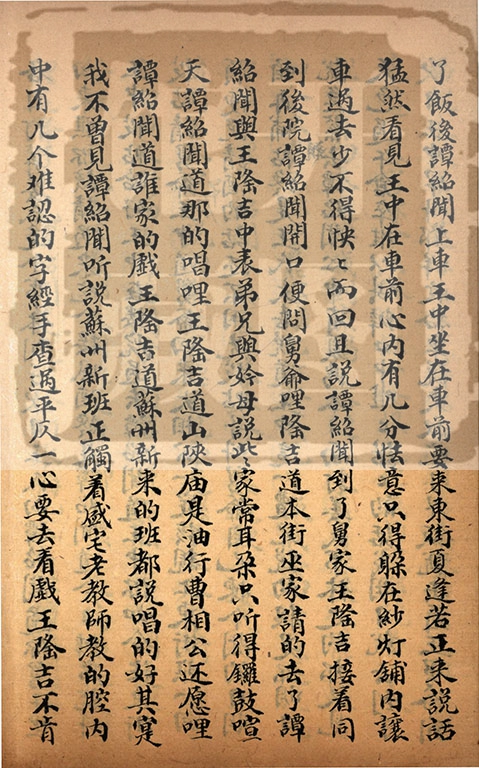 了飯後譚紹聞上車王中坐在車前要來東街夏逢若正来說話
猛然看見王中在車前心內有几分怯意只得躲在紗灯舖內讓
車過去少不得怏〻而回且說譚紹聞到了舅家王隆吉接着同
到後院譚紹聞開口便問舅爺哩隆吉道本街巫家請的去了譚
紹聞與王隆吉中表弟兄與妗母說些〻家常耳朶只听得鑼鼓喧
天譚紹聞道那的唱哩王隆吉道山陜庙是油行曹相公还愿哩
譚紹聞道誰家的戲王隆吉道蘇州新来的班都說唱的好其寔
我不曾見譚紹聞听說蘇州新班正觸着盛宅老教師教的腔內
中有几个难認的字經手查過平仄一心要去看戲王隆吉不肯